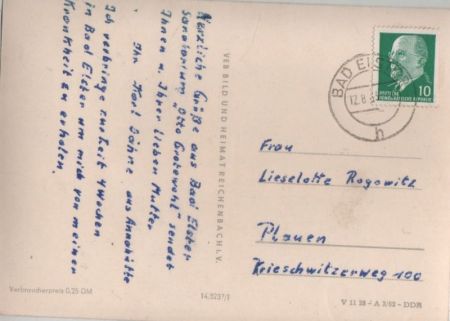 Herzliche Grüße aus Bad Elster
Sanatorium „Otto Grotewohl" sendet
Ihnen u. Ihrer lieben Mutter
Ihr Karl Dähne aus Annahütte
Ich verbringe zurZeit 4 Wochen
in Bad Elster um mich von meiner
Krankheit zu erholen.
VEB BILD UND HEIMAT REICHENBACH I. V.
BAD ELS
12.8.
h
DEUTSCHE
DEMOKRATISCHE REPUBLIK
10
Frau
Lieselotte Rogowitz
Plauen
Krieschwitzerweg 100
Verbraucherpreis 0,25 DM
14/8237/1
V 11 28 - A 2/62 - DDR